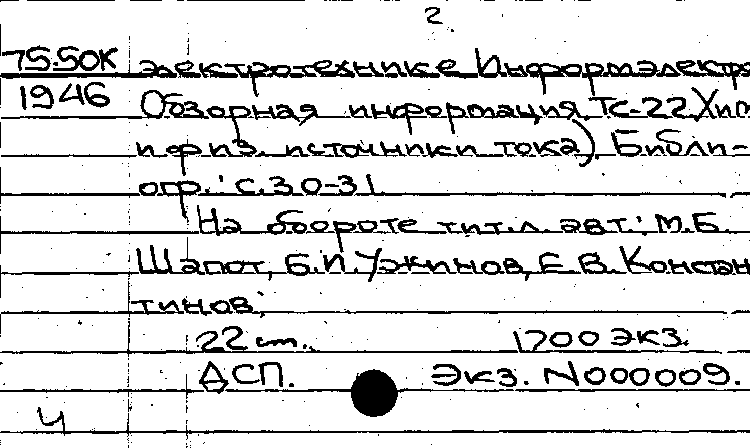 2
75.50К электротехнике Информэлектро
1946 Обзорная информация. ТС-22. Хим.
и физ. источники тока). Библи-
огр.: с.30-31.
На обороте тит.л. авт.: М.Б.
Шапот, Б.И. Устинов, Е.В. Констан
тинов;
22 cm. 1700 экз.
ДСП. Экз. N000009.
Ч